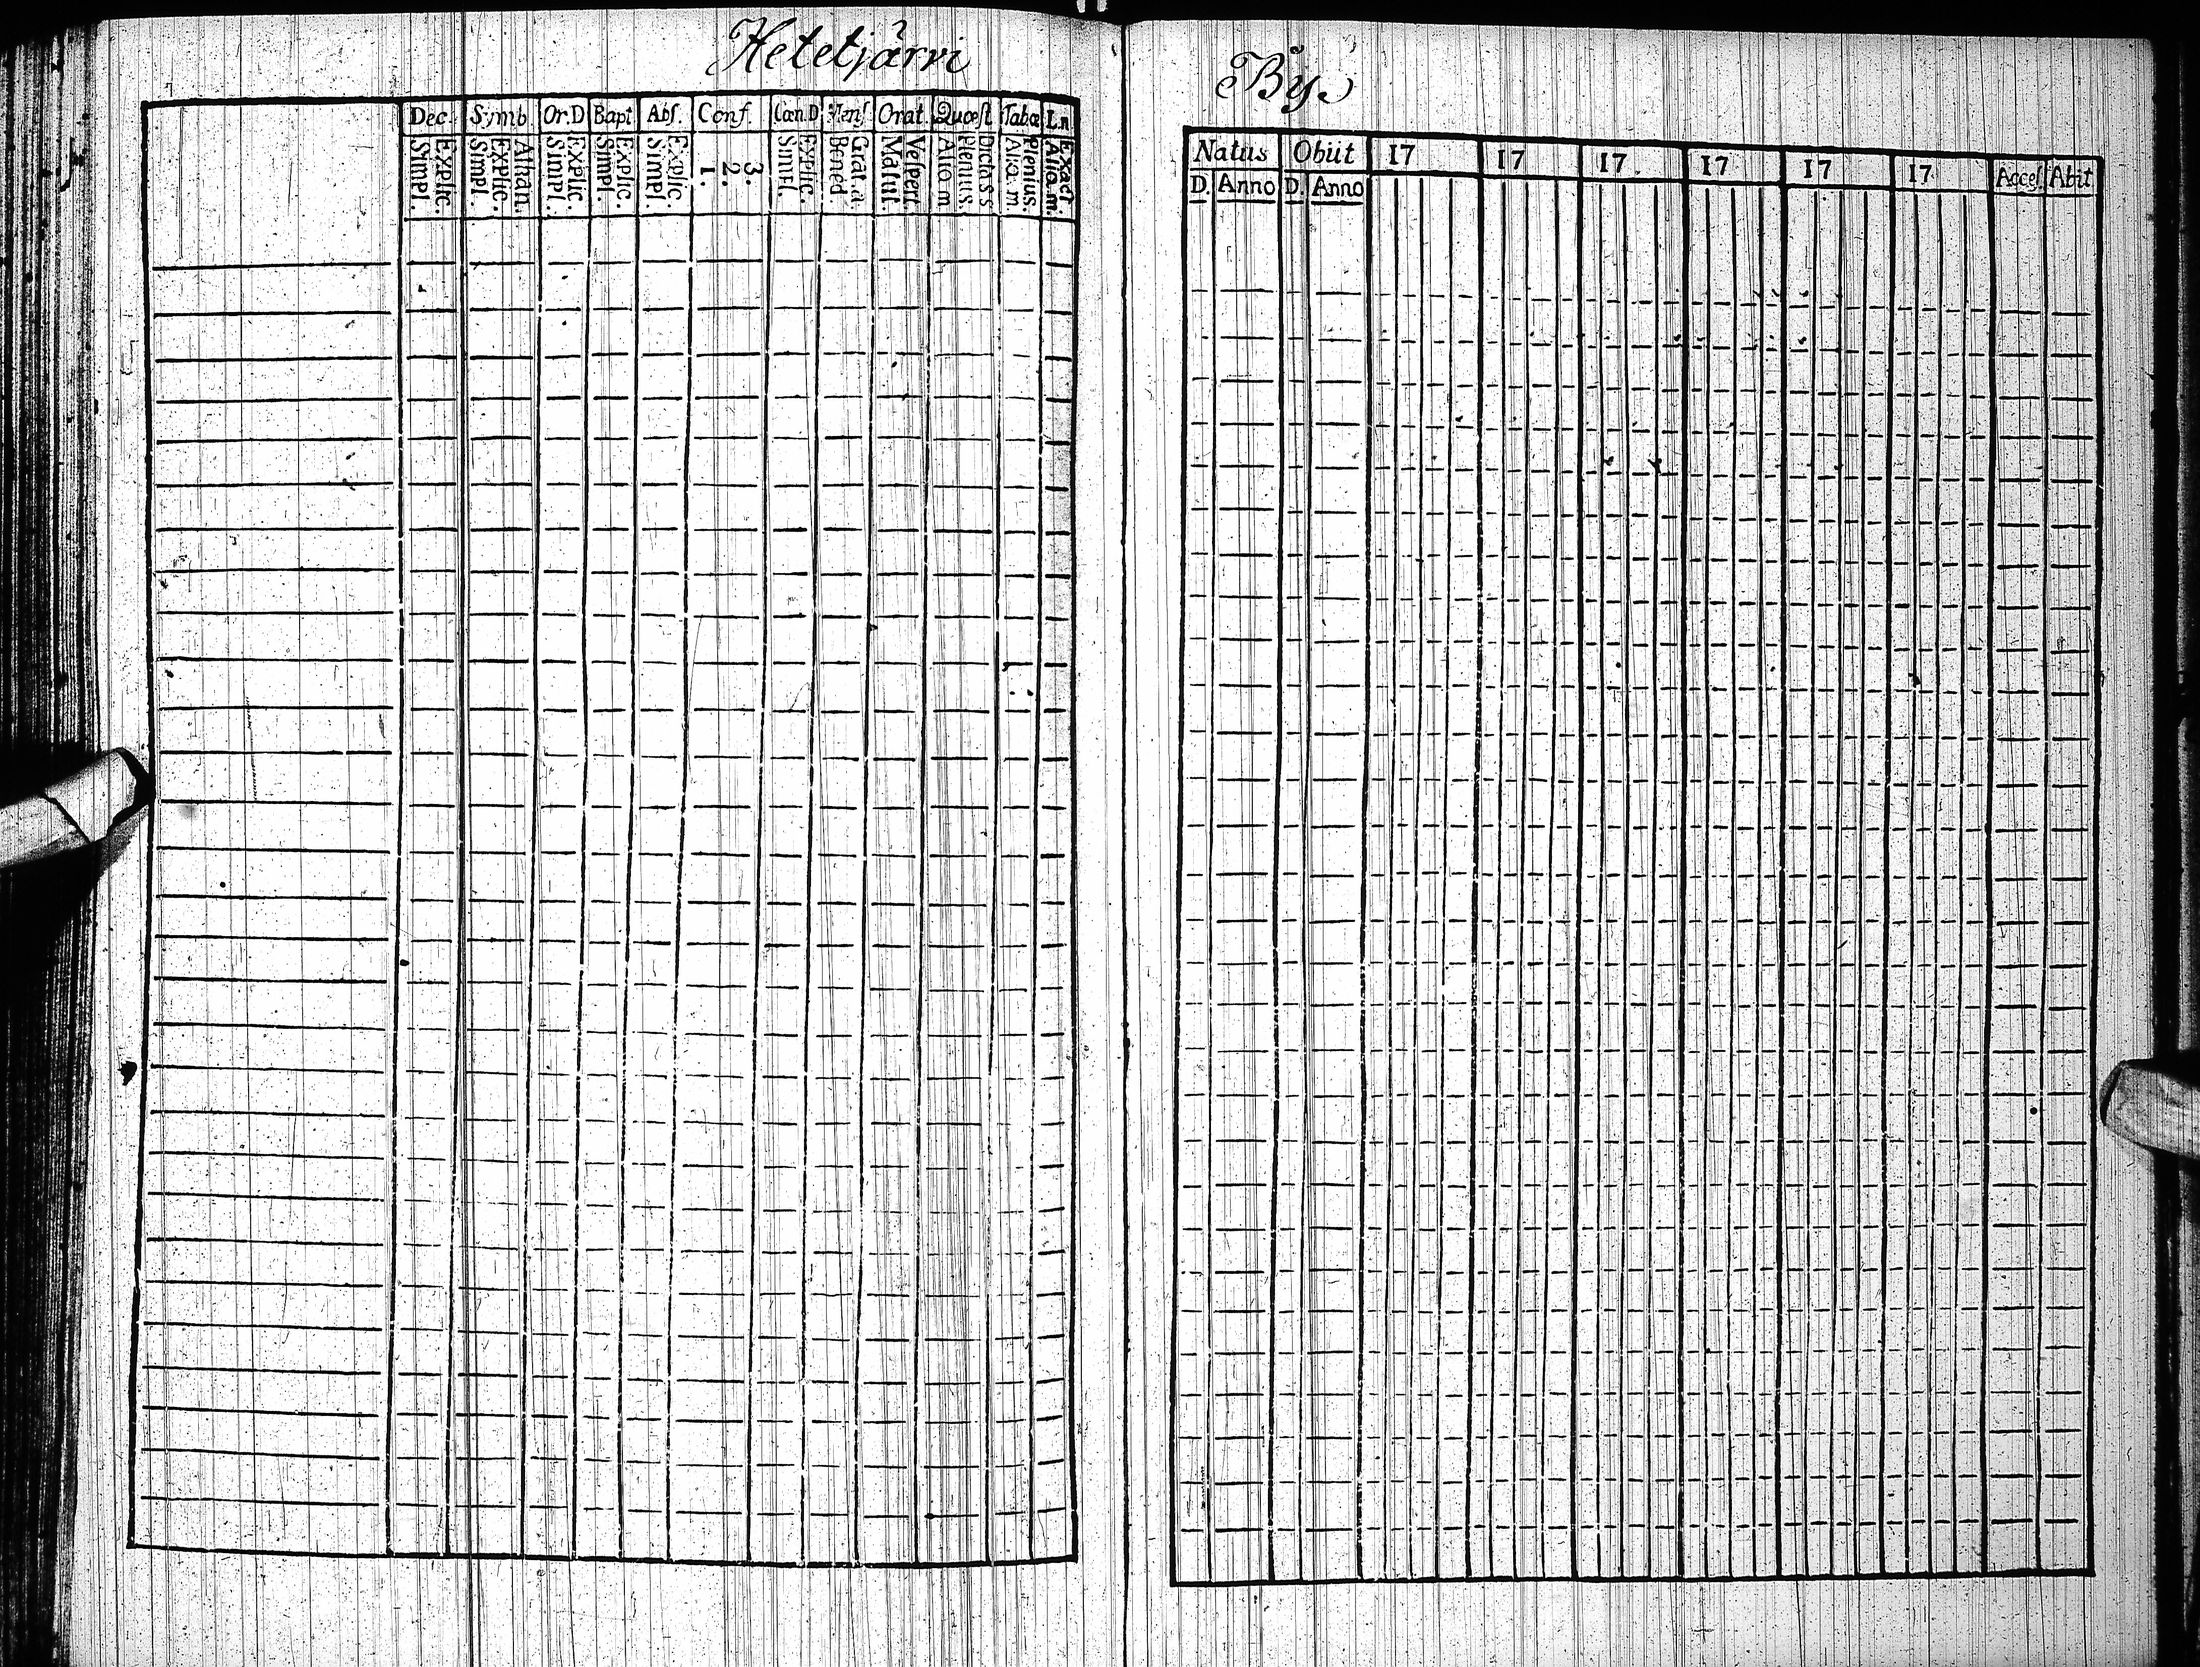 Hetetjärvi
Dec. Symb. Or.D Bapt Abſ. Conf. Cœn.D Menſ Orat. Quœſt Tabœ L.n
Simpl. Explic. Simpl. Explic. Athan. Simpl. Explic. Simpl. Explic. Simpl. Explic. 1. 2. 3. Simpl. Explic. Bened. Grat.a. Matut. Veſpert. Alio.m Plenius. Dicta s s Alia.m. Plenius. Alia.m. Exact.
By.
Natus Obiit 17 17 17 17 17 17 Acceſ. Abit
D. Anno D. Anno